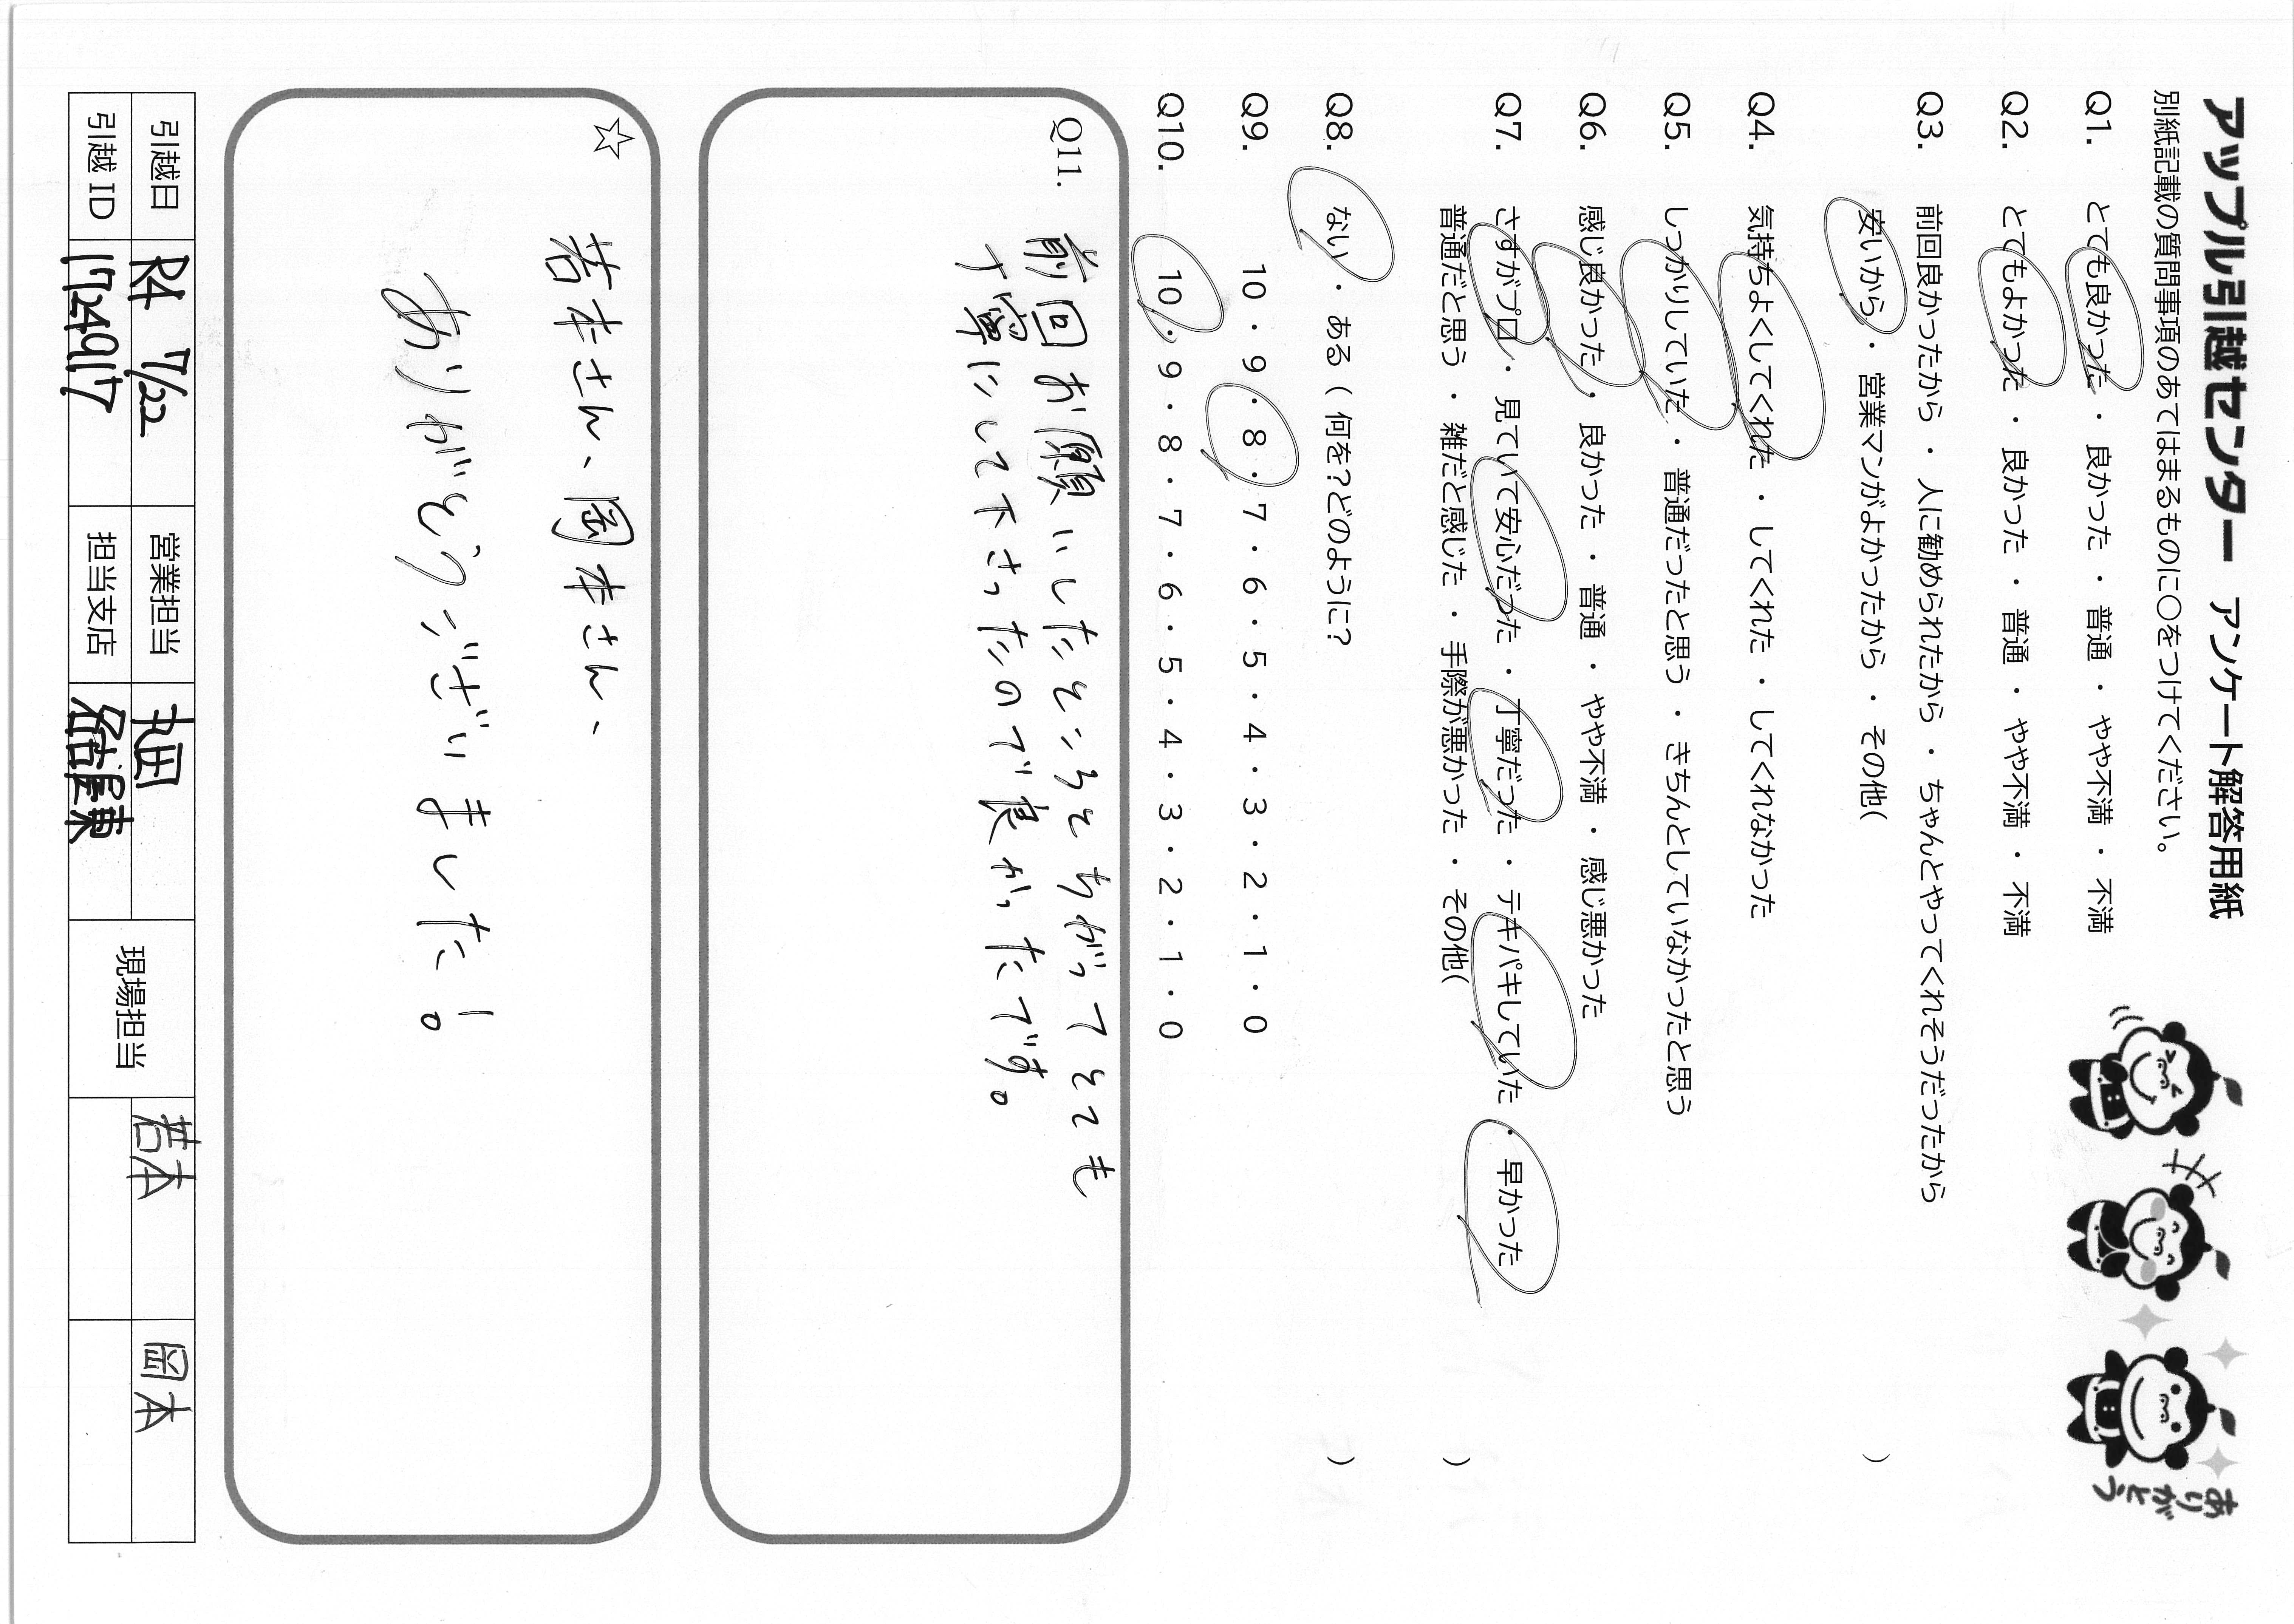 アップル引越センター アンケート解答用紙
別紙記載の質問事項のあてはまるものに○をつけてください。
ありがとう
Q1. とても良かった ・ 良かった ・ 普通 ・ やや不満 ・ 不満
Q2. とてもよかった ・ 良かった ・ 普通 ・ やや不満 ・ 不満
Q3. 前回良かったから ・ 人に勧められたから ・ ちゃんとやってくれそうだったから
安いから ・ 営業マンがよかったから ・ その他( )
Q4. 気持ちよくしてくれた ・ してくれた ・ してくれなかった
Q5. しっかりしていた ・ 普通だったと思う ・ きちんとしていなかったと思う
Q6. 感じ良かった ・ 良かった ・ 普通 ・ やや不満 ・ 感じ悪かった
Q7. さすがプロ ・ 見ていて安心だった ・ 丁寧だった ・ テキパキしていた ・ 早かった
普通だと思う ・ 雑だと感じた ・ 手際が悪かった ・ その他( )
Q8. ない ・ ある ( 何を?どのように? )
Q9. 10 ・ 9 ・ 8 ・ 7 ・ 6 ・ 5 ・ 4 ・ 3 ・ 2 ・ 1 ・ 0
Q10. 10 ・ 9 ・ 8 ・ 7 ・ 6 ・ 5 ・ 4 ・ 3 ・ 2 ・ 1 ・ 0
Q11. 前回お願いしたところとちがってとても
丁寧にして下さったので良かったです。
☆ 若本さん、岡本さん、
ありがとうございました!。
引越日 R4 7/22 営業担当 丸田 現場担当 若本 岡本
引越 ID 1724917 担当支店 名古屋東